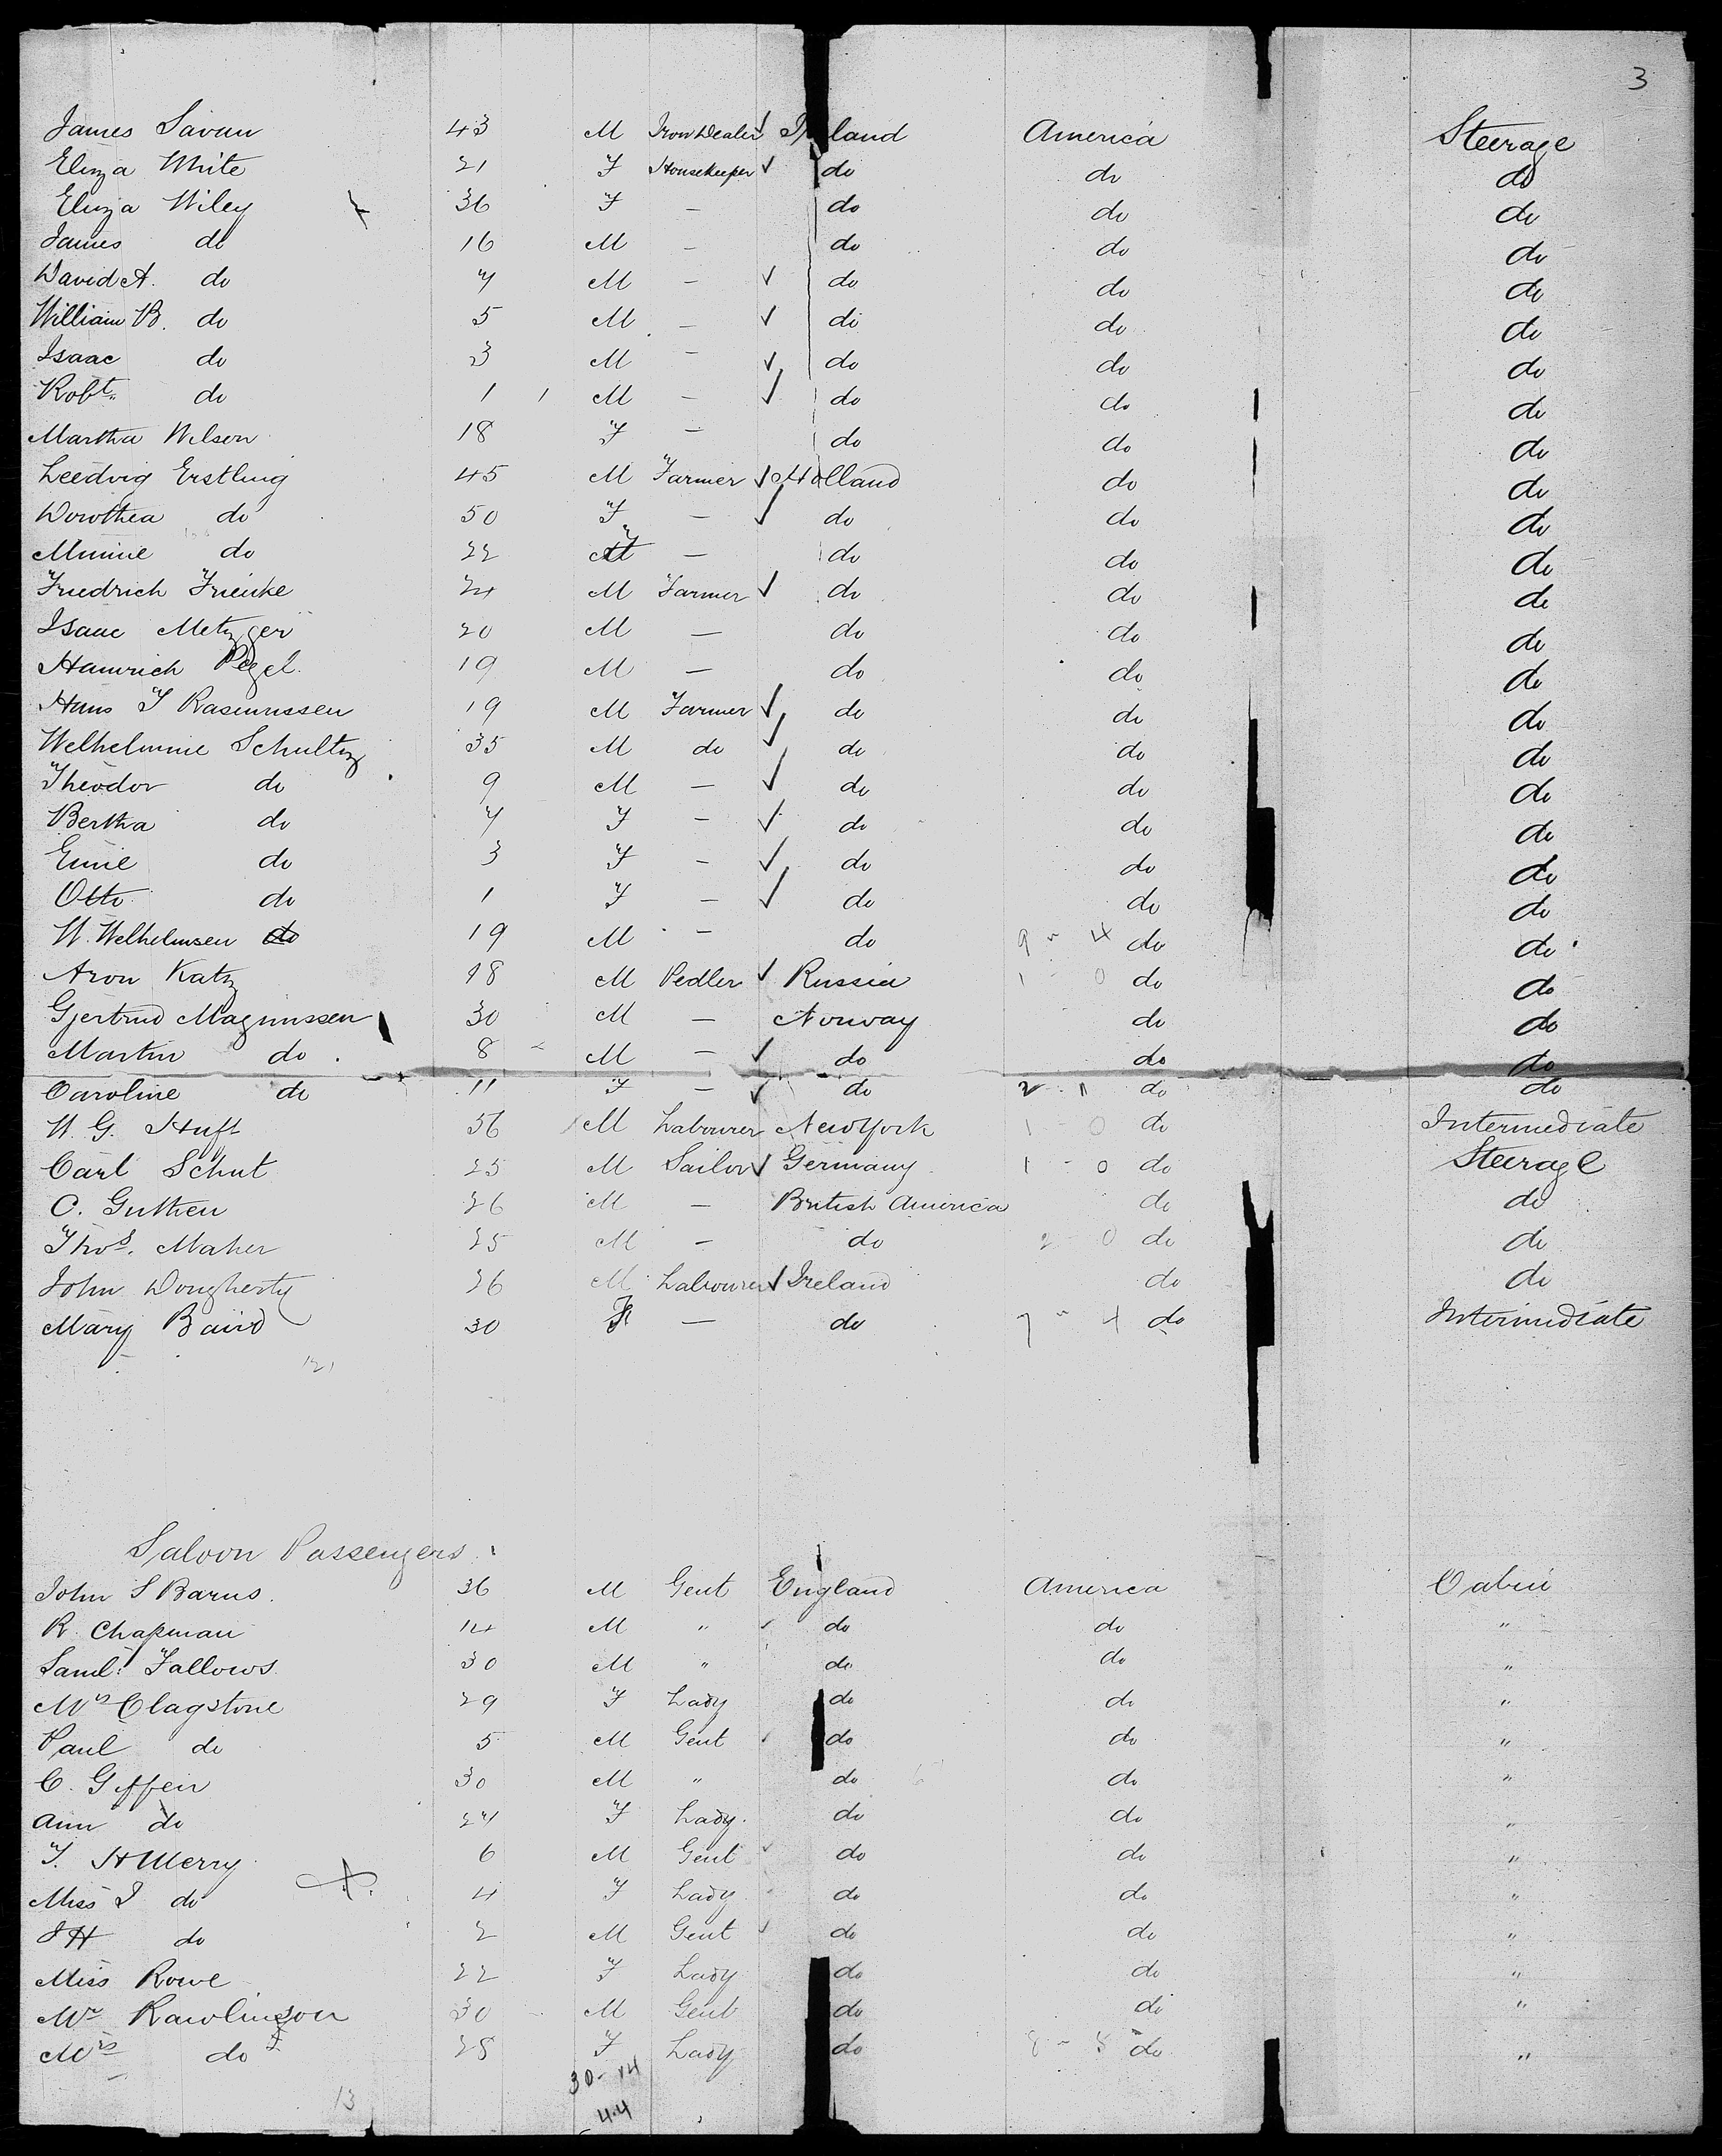 3
James Savan 43 M Iron Dealer ✓ Ireland America Steerage
Eliza White 21 F Housekeeper ✓ do do do
Eliza Wiley 36 F — do do do
James do 16 M — do do do
David A. do 7 M — ✓ do do do
William B. do 5 M — ✓ do do do
Isaac do 3 M — ✓ do do do
Robt. do 1 1 M — ✓ do do do
Martha Wilson 18 F — do do do
Leedvig Erstling 45 M Farmer ✓ Holland do do
Dorothea do 50 F — ✓ do do do
Minnie do 22 F — do do do
Friedrich Frienke 24 M Farmer ✓ do do do
Isaac Metzger 20 M — do do do
Hainrich Pegel 19 M — do do do
Hans F Rasmussen 19 M Farmer ✓ do do do
Welhelmine Schultz 35 M do ✓ do do do
Theodor do 9 M — ✓ do do do
Bertha do 7 F — ✓ do do do
Emil do 3 F — ✓ do do do
Otto do 1 F — ✓ do do do
W. Welhelmsen do 19 M — do 9 - 4 do do
Aron Katz 18 M Pedler ✓ Russia 1 - 0 do do
Gjertrud Magnussen 30 M — Norway do do
Martin do 8 M — ✓ do do do
Caroline do 11 F — ✓ do 2 - 1 do do
W. G. Huft 56 M Labourer New York 1 - 0 do Intermediate
Carl Schut 25 M Sailor ✓ Germany 1 - 0 do Steerage
C. Guthen 26 M — British America do do
Thos. Maher 25 M — do 2 - 0 do do
John Dougherty 26 M Labourer ✓ Ireland do do
Mary Baird 30 F — do 7 - 4 do Intermediate
121
Saloon Passengers
John S Barns 36 M Gent England America Cabin
R. Chapman 14 M " ✓ do do "
Saml. Fallows 30 M " do do "
Mrs Clagstone 29 F Lady do do "
Paul do 5 M Gent ✓ do do "
C. Giffen 30 M " do do "
Ann do 27 F Lady do do "
F. H Merry 6 M Gent ✓ do do "
Miss I do 4 F Lady do do "
J H do 2 M Gent ✓ do do "
Miss Rowe 22 F Lady do do "
Mr Rawlinson 30 M Gent do do "
Mrs do 28 F Lady do 8 - 5 do "
30 - 14
13
44